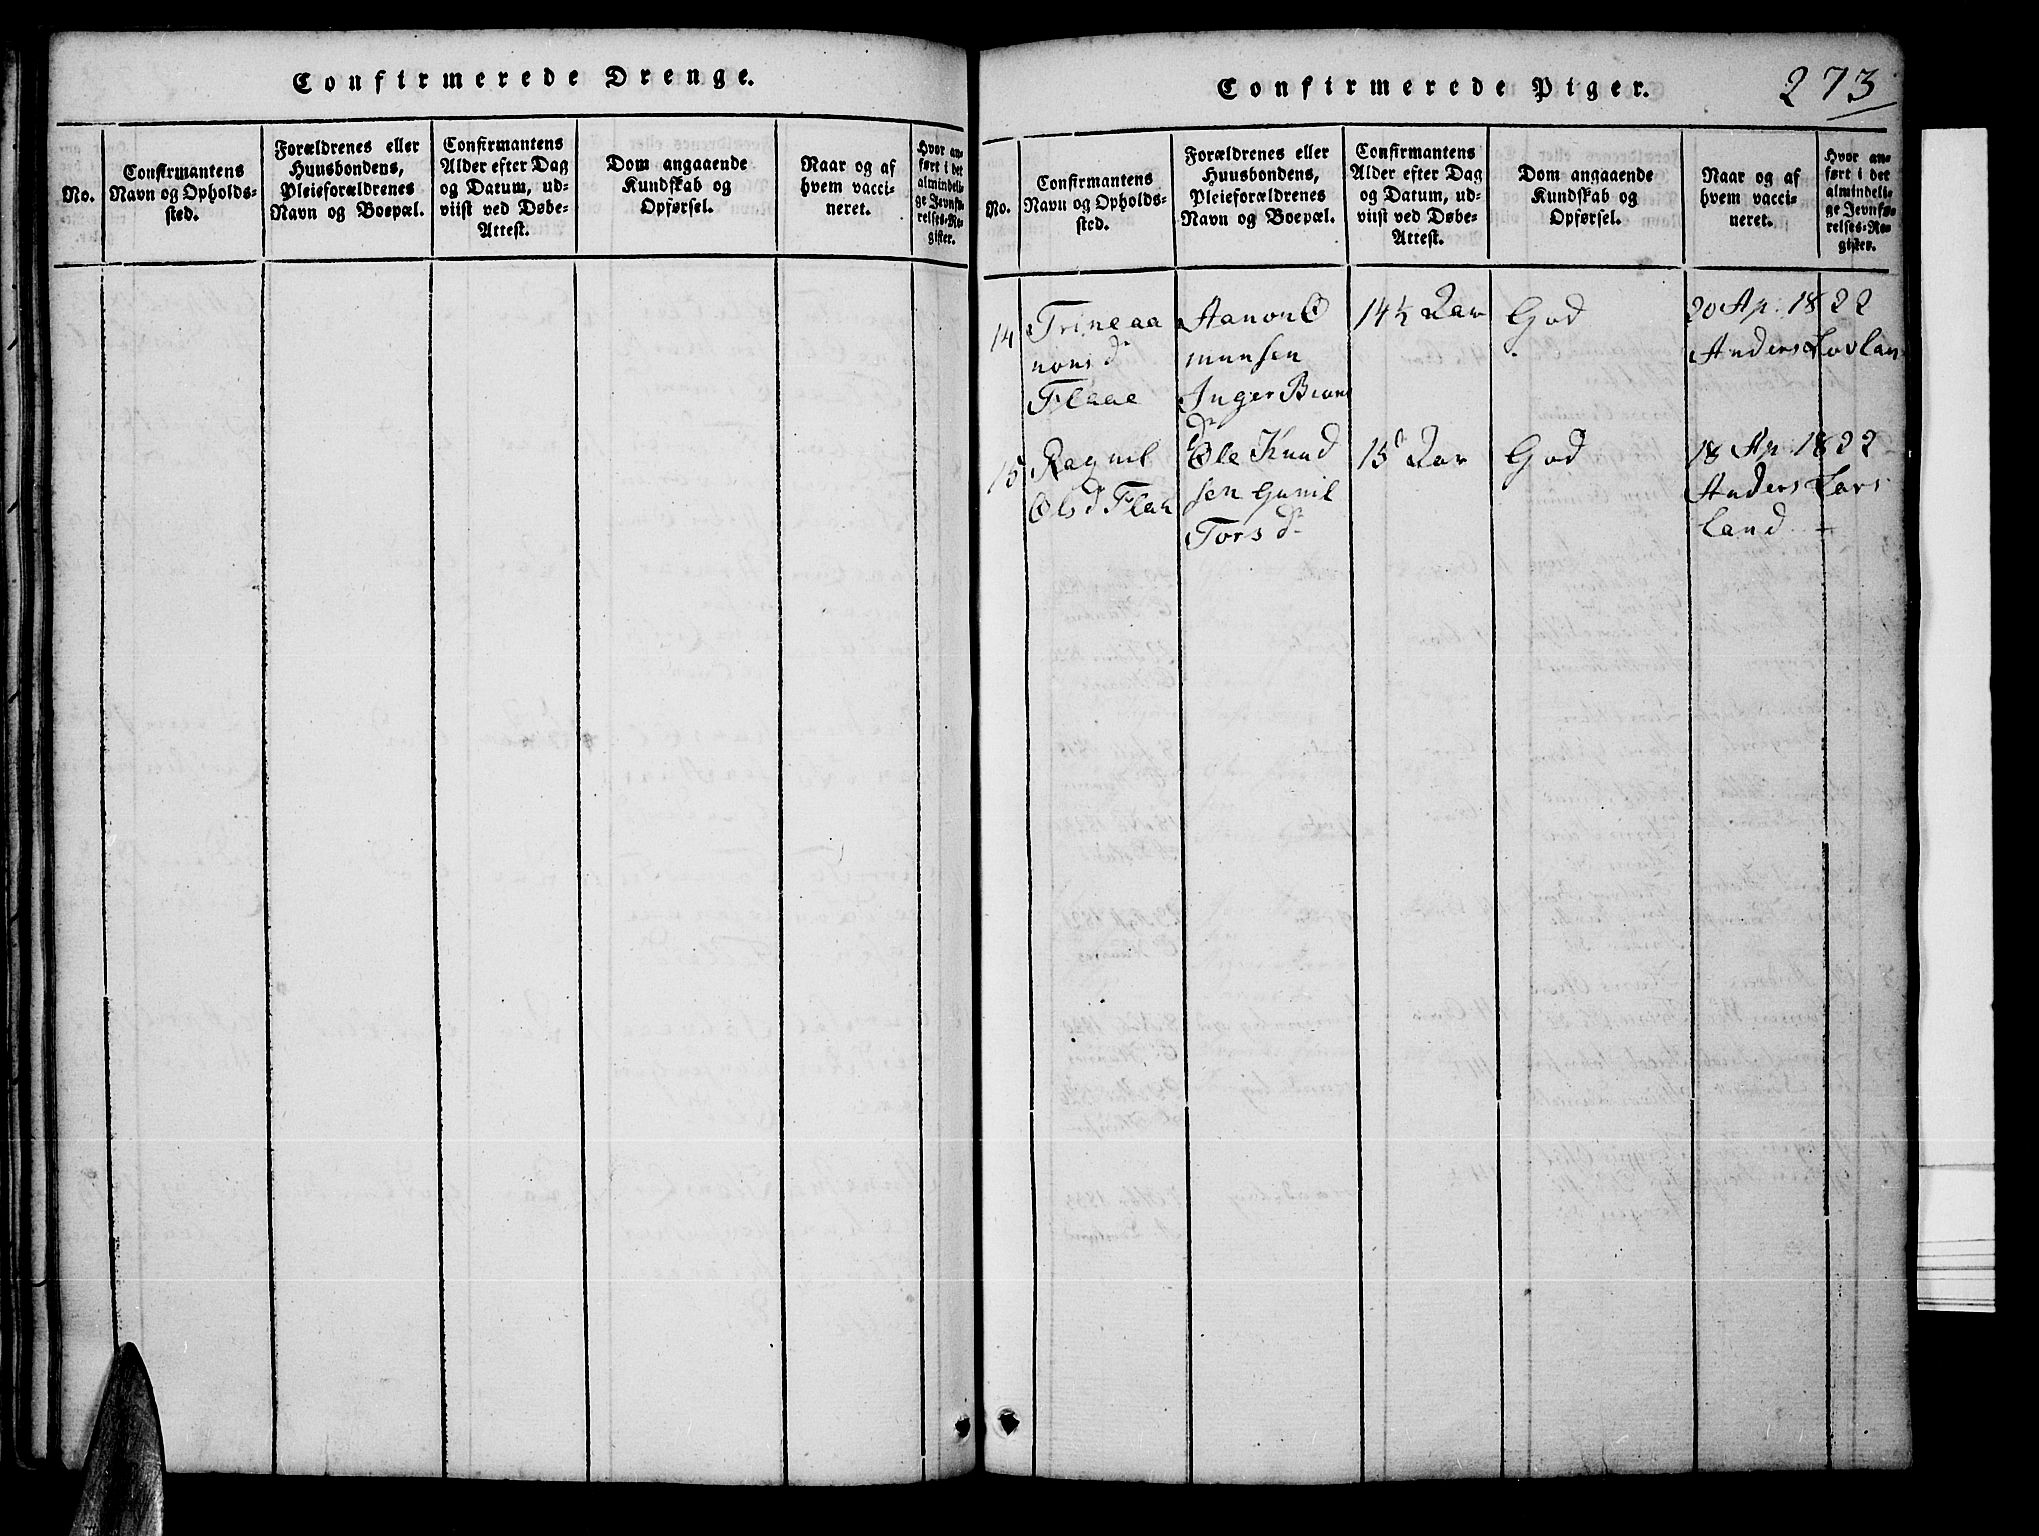 Confirmerede Drenge.
No.
Confirmantens
Navn og Opholds-
sted.
Forældrenes eller
Huusbondens,
Pleieforældrenes
Navn og Boepæl.
Confirmantens
Alder efter Dag
og Datum, ud-
viist ved Døbe-
Attest.
Dom angaaende
Kundskab og
Opførsel.
Naar og af
hvem vacci-
neret.
Hvor an-
ført i det
almindeli-
ge Jevnfø-
relses-Re-
gister.
Confirmerede Piger.
273
No.
Confirmantens
Navn og Opholds-
sted.
Forældrenes eller
Huusbondens,
Pleieforældrenes
Navn og Boepæl.
Confirmantens
Alder efter Dag
og Datum, ud-
viist ved Døbe-
Attest.
Dom angaaende
Kundskab og
Opførsel.
Naar og af
hvem vacci-
neret.
Hvor an-
ført i det
almindeli-
ge Jevnfø-
relses-Re-
gister.
14
Trine Aa
nons dr
Flaae
Aanon O
munsen
Inger Brons
dr
14½ Aar
God
20 Ap. 1822
Anders Lovlan
15
Ragnil
Ols d Flaa
Ole Knud
sen Gunil
Tors dr
15 Aar
God
18 Ap. 1822
Anders
land